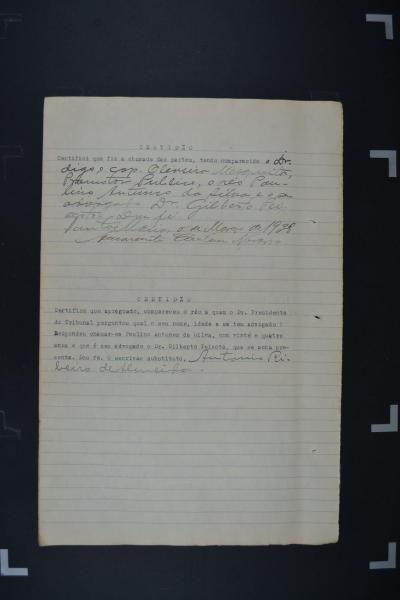 CERTIDÃO
Certifico que fiz a chamada das partes, tendo comparecido o Dr.
digo, cap. Mesquita,
Promotor Publico, o réo Pau-
lino Antunes da Silva e o
advogado Dr. Gilberto Pei-
xoto. Dou fé
Santa Maria de Março de 1938

CERTIDÃO
Certifico que apregoado, compareceu o réo a quem o Dr. Presidente
do Tribunal perguntou qual o seu nome, idade e se tem advogado?
Respondeu chamar-se Paulino Antunes da Silva, com vinte e quatro
anos e que é seu advogado o Dr. Gilberto Peixoto, que se acha pre-
sente. Dou fé. O escrivão substituto, Antonio Ri-
beiro de Almeida.